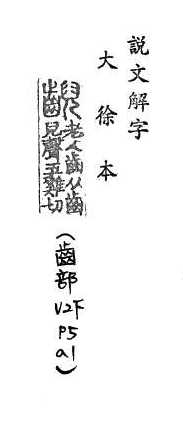 説文解字
大徐本
齯
老人齒从齒
兒聲五雞切
(齒部
V2F
P5
a1)